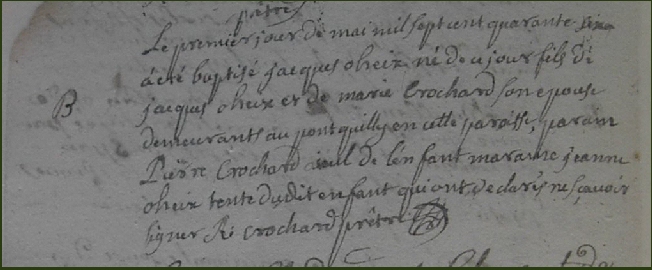 prêtre
Le premier jour de mai mil sept cent quarante
B
a été baptisé jacques oheix né de ce jour fils de
jacques oheix et de marie Crochard son epouse
demeurants au pontquilly en cette paroisse, parain
Pierre Crochard aieul de lenfant maraine jeanne
oheix tente dudit enfant qui ont declarés ne sçavoir
signer R: Crochard prêtre